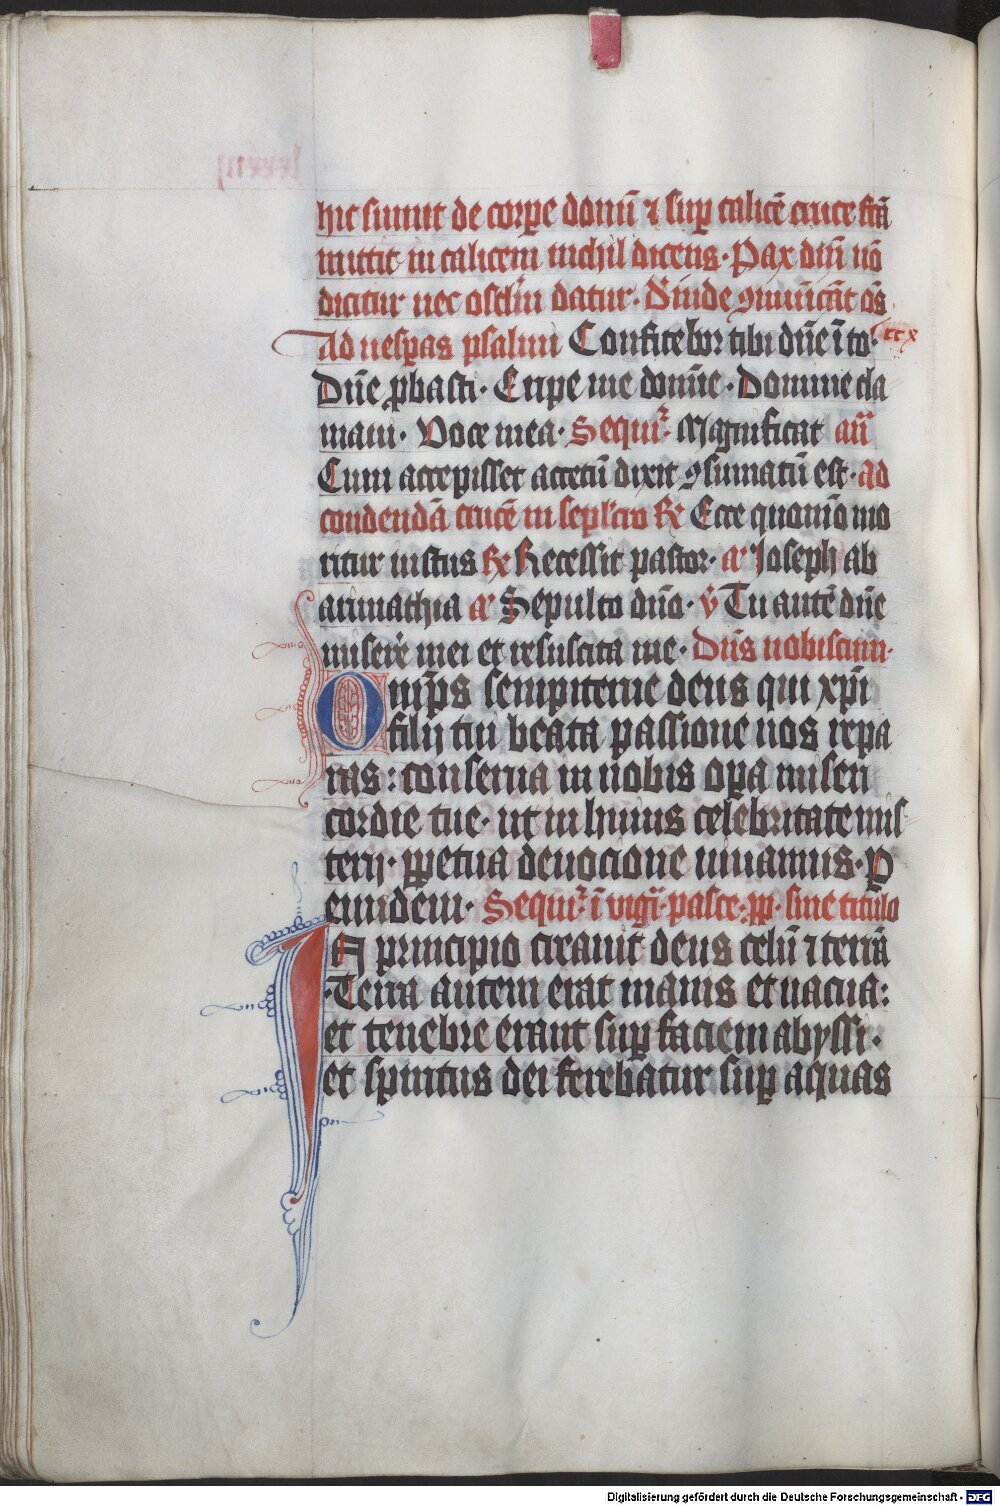 hic sumit de corpe domī ⁊ sup calicē cruce fcā
mittit in calicem nichil dicens· Pax dnī nō
dicitur nec osclm̄ datur· Deinde ꝯmūicāt oēs
Ad uesperas psalmi Confitebor tibi dn̄e ī to·
Dn̄e ꝓbasti· Eripe me domīe· Domine cla
maui· Uoce mea· Sequit᷑· Magnificat an̄
Cum accepisset acetū dixit ꝯsumatū est· ad
condendā crucē in seplcro ℞ Ecce quomō mo
ritur iustus ℞ Recessit pastor· an̄ Joseph ab
arimathia an̄ Sepulto dn̄o· v̄ Tu autē dn̄e
misere mei et resuscita me· Dn̄s uobiscum·
Omp̄s sempiterne deus qui xpī
filij tui beata passione nos repa
ras: conserua in nobis oꝑa miseri
cordie tue· ut in huius celebritate mis
terij· ꝑpetua deuocione uiuamus· P
eundem· Sequit᷑ ī vigī· pasce· ꝓp· sine titulo
In principio creauit deus celū ⁊ terrā
·Terra autem erat inanis et uacua:
et tenebre erant suꝑ faciem abyssi·
et spiritus dei ferebatur suꝑ aquas
Digitalisierung gefördert durch die Deutsche Forschungsgemeinschaft - DFG